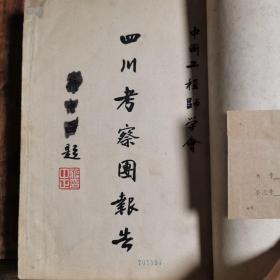 中國工程師學會
四川考察團報告
題